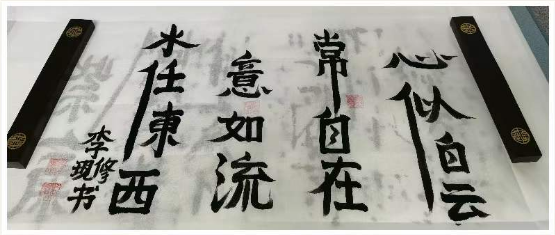 心似白云
常自在
意如流
水任東西
李修
书